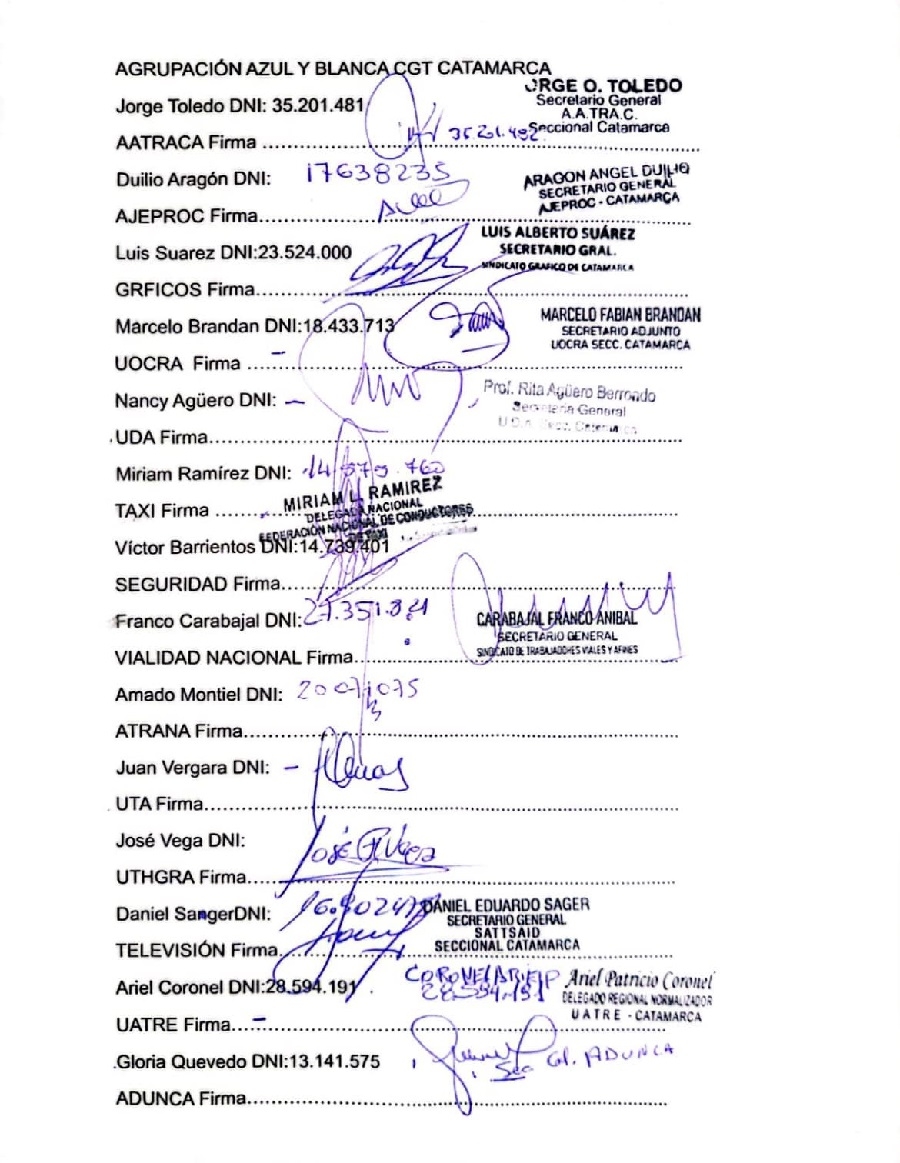 AGRUPACIÓN AZUL Y BLANCA CGT CATAMARCA
JORGE O. TOLEDO
Secretario General
A.A.TRA.C.
Seccional Catamarca
Jorge Toledo DNI: 35.201.481
AATRACA Firma
Duilio Aragón DNI: 17638235
ARAGON ANGEL DUILIO
SECRETARIO GENERAL
AJEPROC - CATAMARCA
AJEPROC Firma
LUIS ALBERTO SUÁREZ
SECRETARIO GRAL.
SINDICATO GRAFICO DE CATAMARCA
Luis Suarez DNI:23.524.000
GRFICOS Firma
MARCELO FABIAN BRANDAN
SECRETARIO ADJUNTO
UOCRA SECC. CATAMARCA
Marcelo Brandan DNI:18.433.713
UOCRA Firma
Prof. Rita Agüero Berrondo
Secretaria General
Nancy Agüero DNI: -
UDA Firma
Miriam Ramírez DNI:
MIRIAM L. RAMIREZ
DELEGADA NACIONAL
FEDERACIÓN NACIONAL DE CONDUCTORES
DE TAXI
TAXI Firma
Víctor Barrientos DNI:14.739.401
SEGURIDAD Firma
Franco Carabajal DNI:
CARABAJAL FRANCO ANIBAL
SECRETARIO GENERAL
SINDICATO DE TRABAJADORES VIALES Y AFINES
VIALIDAD NACIONAL Firma
Amado Montiel DNI:
ATRANA Firma
Juan Vergara DNI: -
UTA Firma
José Vega DNI:
José Vega
UTHGRA Firma
Daniel SangerDNI:
DANIEL EDUARDO SAGER
SECRETARIO GENERAL
SATTSAID
SECCIONAL CATAMARCA
TELEVISIÓN Firma
Ariel Coronel DNI:28.594.191
28.594.191
Ariel Patricio Coronel
DELEGADO REGIONAL NORMALIZADOR
UATRE - CATAMARCA
UATRE Firma
Gloria Quevedo DNI:13.141.575
Sec Gl. ADUNCA
ADUNCA Firma